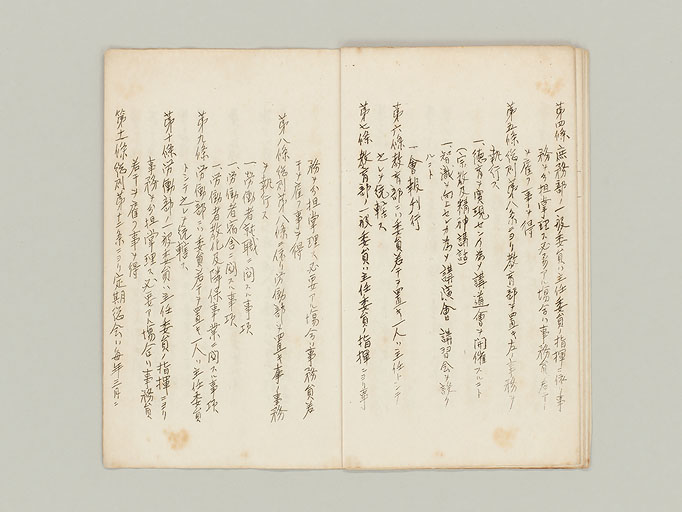 第四條 庶務部ノ一般委員ハ主任委員ノ指揮ニ依リ事
務ヲ分担掌理ス必要アル場合ハ事務員若干
ヲ雇フ事ヲ得
第五條 總則第八条ニヨリ教育部ヲ置キ左ノ事務ヲ
執行ス
一、徳育ヲ実現センガ為メ講道會ヲ開催スルコト
(宗教及精神講話)
一、智識ノ向上センガ為メ講演會講習会ヲ設ク
ルコト
一、會報刊行
第六條 教育部ハ委員若干ヲ置キ一人ハ主任トシテ
之レヲ統轄ス
第七條 教育部ノ一般委員ハ主任委員ノ指揮ニヨリ事
務ヲ分担掌理ス必要アル場合ハ事務員若
干ヲ雇フ事ヲ得
第八條 總則第八條ニ依リ労働部ヲ置キ左ノ事務
ヲ執行ス
一、労働者就職ニ関スル事項
一、労働者宿舎ニ関スル事項
一、労働者教化及隣保事業ニ関スル事項
第九條 労働部ハ委員若干ヲ置キ一人ハ主任委員
トシテ之レヲ統轄ス
第十條 労働部ノ一般委員ハ主任委員ノ指揮ニヨリ
事務ヲ分担掌理ス必要アル場合ハ事務員
若干ヲ雇フ事ヲ得
第十一條 總則第十三条ニヨリ定期總会ハ毎年三月ニ